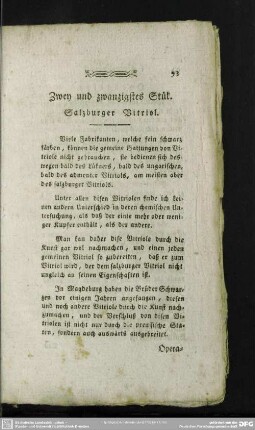 93
Zwey und zwanzigstes Stük.
Salzburger Vitriol.
Viele Fabrikanten, welche sein schwarz
färben, können die gemeine Gattungen von Vi-
triole nicht gebrauchen, sie bedienen sich des-
wegen bald des bald des ungarischen,
bald des admonter Vitriols, am meisten aber
des salzburger Vitriols.
Unter allen disen Vitriolen finde ich kei-
nen andern Unterschied in deren chemischen Un-
tersuchung, als daß der einte mehr oder weni-
ger Kupfer enthält, als der andere.
Man kan daher dise Vitriole durch die
Kunst gar wol nachmachen, und einen jeden
gemeinen Vitriol so zubereiten, daß er zum
Vitriol wird, der dem salzburger Vitriol nicht
ungleich an seinen Eigenschaften ist.
In Magdeburg haben die Brüder Schwar-
zen vor einigen Jahren angefangen, diesen
und noch andere Vitriole durch die Kunst nach-
zumachen, und der Verschluß von disen Vi-
triolen ist nicht nur durch die preussische Sta-
ten, sondern auch auswärts ausgebreitet.
Opera-